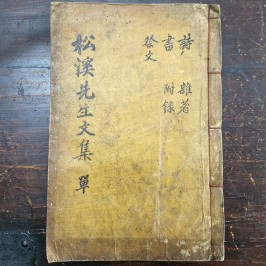 詩 雜著
書 附錄
祭文
松溪先生文集 單